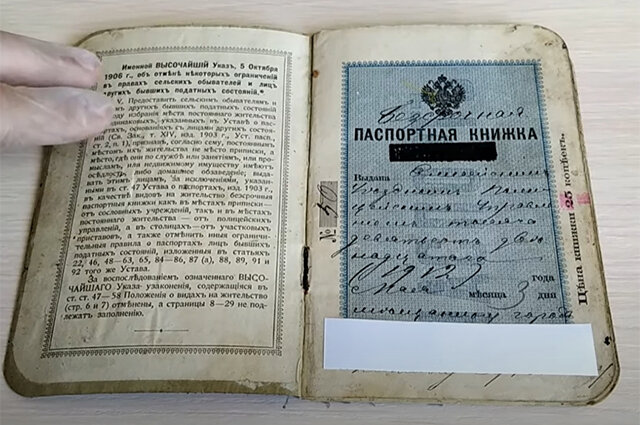 Именной ВЫСОЧАЙШІЙ Указъ, 5 Октября
1906 г., объ отмѣнѣ нѣкоторыхъ ограниченій
въ правахъ сельскихъ обывателей и лицъ
другихъ бывшихъ податныхъ состояній.*
V. Предоставить сельскимъ обывателямъ и
другихъ бывшихъ податныхъ состояній
избранія мѣста постояннаго жительства
одинаковыхъ, указанныхъ въ Уставѣ о пас-
портахъ, основаніяхъ съ лицами другихъ состоя-
ній (Св. Зак., т. XIV, изд. 1903 г., Уст. пасп.
ст. 2, п. 1), признавъ, согласно сему, постояннымъ
мѣстомъ ихъ жительства не мѣсто приписки, а
мѣсто, гдѣ они по службѣ или занятіямъ, про-
мысламъ, или недвижимому имуществу имѣютъ
осѣдлость, либо домашнее обзаведеніе; выда-
вать этимъ лицамъ, за исключеніями, указан-
ными въ ст. 47 Устава о паспортахъ, изд. 1903 г.,
въ качествѣ видовъ на жительство безсрочныя
паспортныя книжки какъ въ мѣстахъ приписки—
отъ сословныхъ учрежденій, такъ и въ мѣстахъ
постояннаго жительства — отъ полицейскихъ
управленій, а въ столицахъ—отъ участковыхъ
приставовъ, а также отмѣнить иныя ограничи-
тельныя правила о паспортахъ лицъ бывшихъ
податныхъ состояній, изложенныя въ статьяхъ
22, 46, 48—63, 65, 84—86, 87 (а), 88, 89, 91 и
92 того же Устава.
За воспослѣдованіемъ означеннаго ВЫСО-
ЧАЙШАГО Указа узаконенія, содержащіяся въ
ст. ст. 47—58 Положенія о видахъ на жительство
(стр. 6 и 7) отмѣнены, а страницы 8—29 не под-
лежатъ заполненію.
Безсрочная
ПАСПОРТНАЯ КНИЖКА
Выдана
Управле
тысяча
девятьсотъ двѣ
надцатаго
(1912) года
Мая мѣсяца 3 дня
мѣщанину города
№ 50
Цѣна книжки 25 копѣекъ.